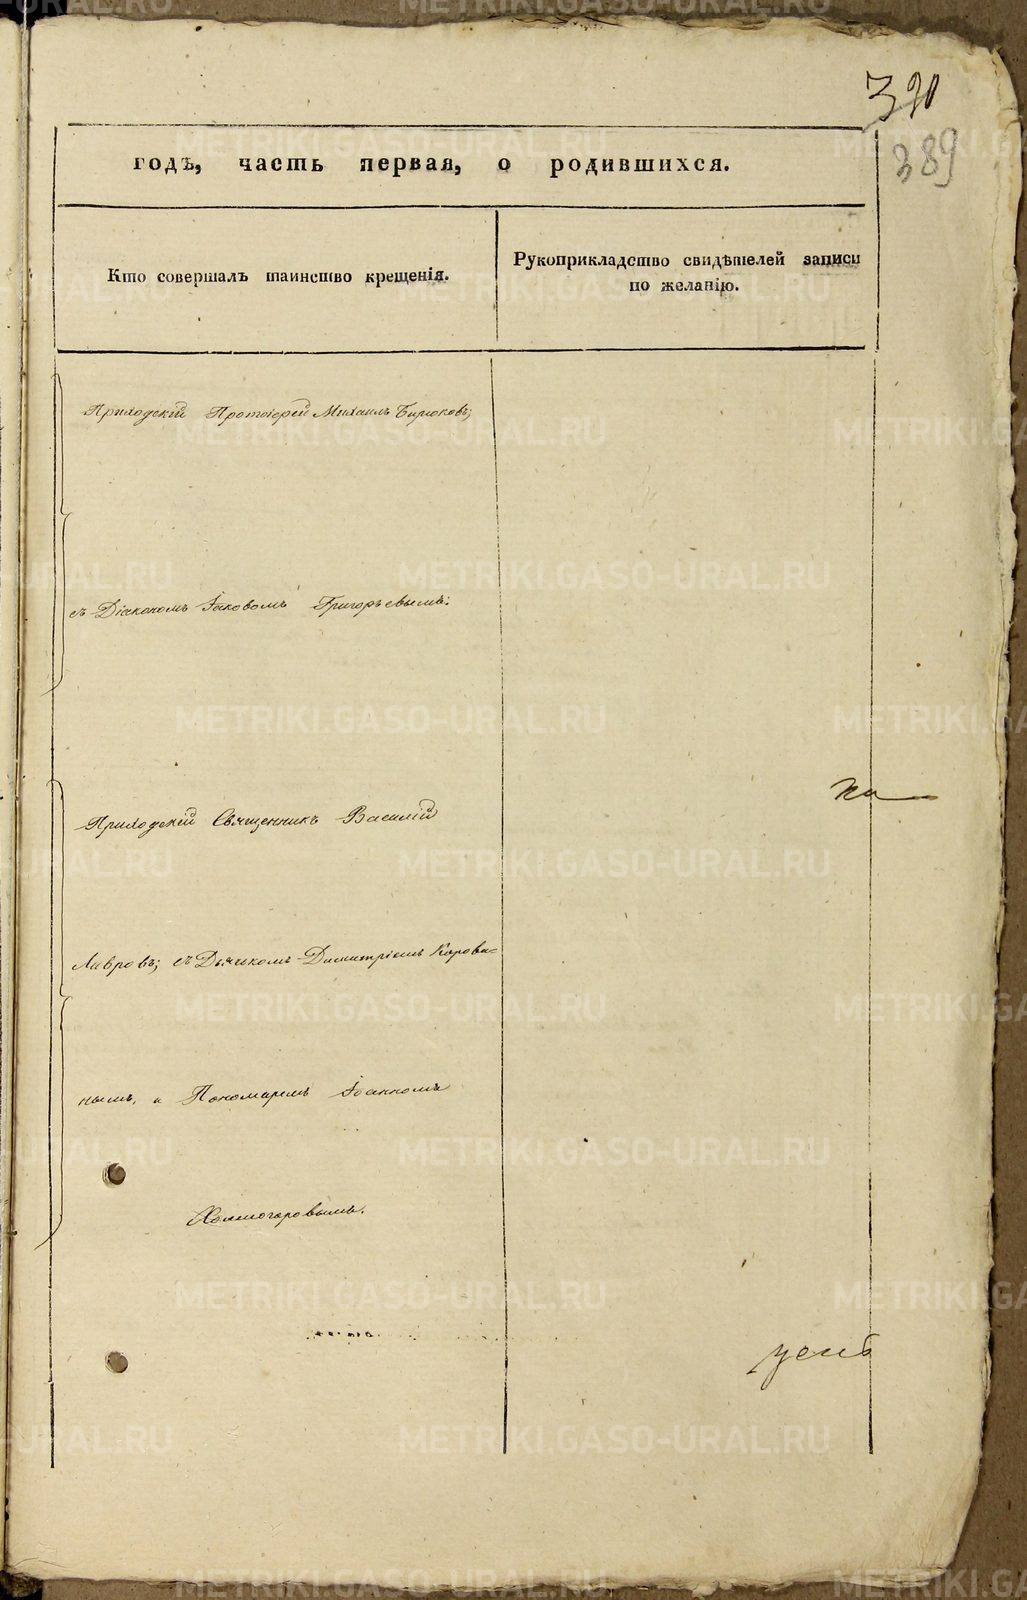 390
389
годъ, часть первая, о родившихся.
Кто совершалъ таинство крещенія.
Рукоприкладство свидѣтелей записи
по желанію.
Приходскій Протоіерей Михаилъ Бирюковъ;
съ Діакономъ Іаковомъ Григорьевымъ:
Приходскій Священникъ Василій
Лавровъ; съ Дьячкомъ Димитріемъ Корови=
нымъ, и Пономаремъ Іоанномъ
Холмогоровымъ.
METRIKI.GASO-URAL.RU